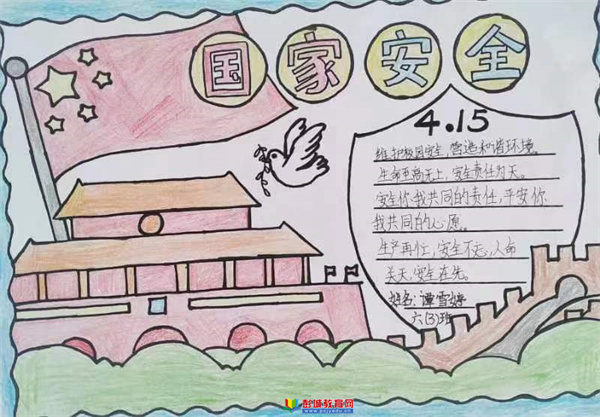 国家安全
4.15
维护校园安全,营造和谐环境。
生命至高无上,安全责任为天。
安全你我共同的责任,平安你
我共同的心愿。
生产再忙,安全不忘,人命
关天,安全在先。
姓名:谭雪婷
六(3)班
彭城教育网